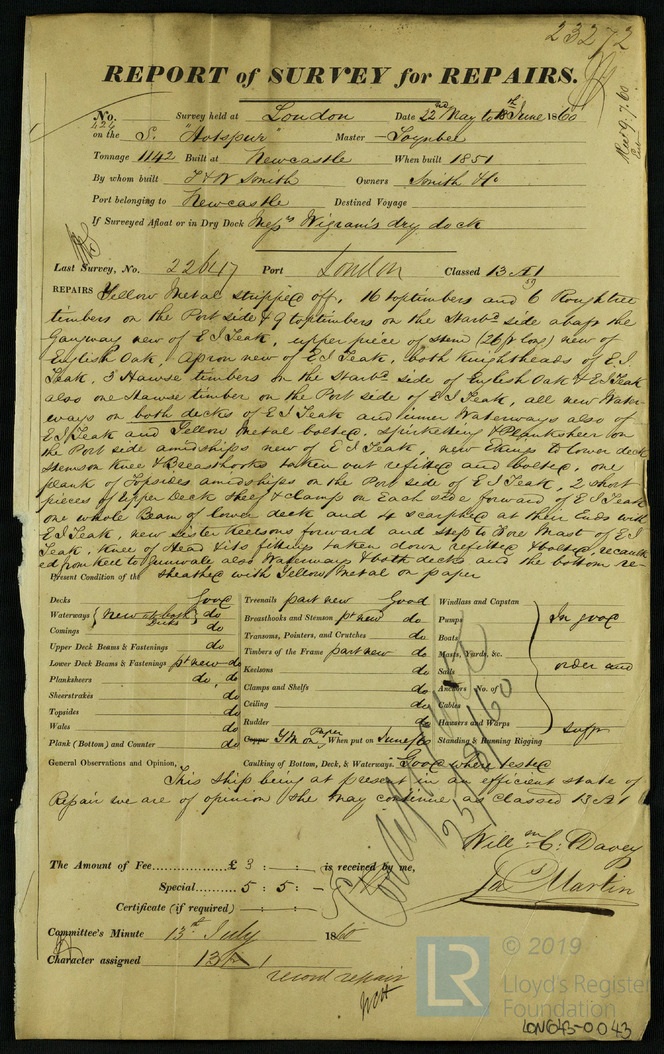 23272
REPORT of SURVEY for REPAIRS.
No. 424 Survey held at London Date 22nd May to 18th June 1860
on the S. "Hotspur" Master Toynbee
Tonnage 1142 Built at Newcastle When built 1851
By whom built T & W Smith Owners Smith & Co
Port belonging to Newcastle Destined Voyage
If Surveyed Afloat or in Dry Dock Messrs Wigram's dry dock
Last Survey, No. 22647 Port London Classed 13 A1
REPAIRS Yellow Metal stripped off, 16 toptimbers and 6 Roughtree
timbers on the Port side & 9 toptimbers on the Starbd side abaft the
Gangway new of E I Teak, upper piece of stem (26 ft long) new of
English Oak, Apron new of E I Teak, both knightheads of E I
Teak, 3 Hawse timbers on the Starbd side of English Oak & E I Teak
also one Hawse timber on the Port side of E I Teak, all new Water-
ways on both decks of E I Teak and inner Waterways also of
E I Teak and Yellow Metal bolted, spirketting & Planksheer on
the Port side amidships new of E I Teak, new Ekings to lower deck
Stemson knee & Breasthooks taken out refitted and bolted, one
plank of Topsides amidships on the Port side of E I Teak, 2 short
pieces of Upper Deck shelf & clamp on Each side forward of E I Teak
one whole Beam of lower deck and 4 scarphed at their Ends with
E I Teak, new sister keelsons forward and step to Fore Mast of E I
Teak, knee of Head & its fittings taken down refitted & bolted, recaulk
ed from keel to gunwale also Waterways & both decks and the bottom re-
Present Condition of the sheathed with Yellow Metal on paper
Decks Good
Waterways { new at both Decks } do
Comings do
Upper Deck Beams & Fastenings do
Lower Deck Beams & Fastenings pt new do
Planksheers do, do
Sheerstrakes do
Topsides do
Wales do
Plank (Bottom) and Counter do
Treenails part new Good
Breasthooks and Stemson pt new do
Transoms, Pointers, and Crutches do
Timbers of the Frame part new do
Keelsons do
Clamps and Shelfs do
Ceiling do
Rudder do
Copper Y M on Paper When put on June/60
Caulking of Bottom, Deck, & Waterways Good where tested
Windlass and Capstan
Pumps
Boats
Masts, Yards, &c.
Sails
Anchors No. of
Cables
Hawsers and Warps
Standing & Running Rigging
In good
order and
suffr
General Observations and Opinion,
This ship being at present in an efficient state of
Repair we are of opinion she may continue as classed 13 A1
Willm C. Davey
Jas Martin
The Amount of Fee............£ 3 : - : - is received by me,
Special............ 5 : 5 : -
Certificate (if required) - : - : -
Committee's Minute 13th July 1860
Character assigned 13 A 1
record repair
LR © 2019
Lloyd's Register
Foundation
LON643-0043